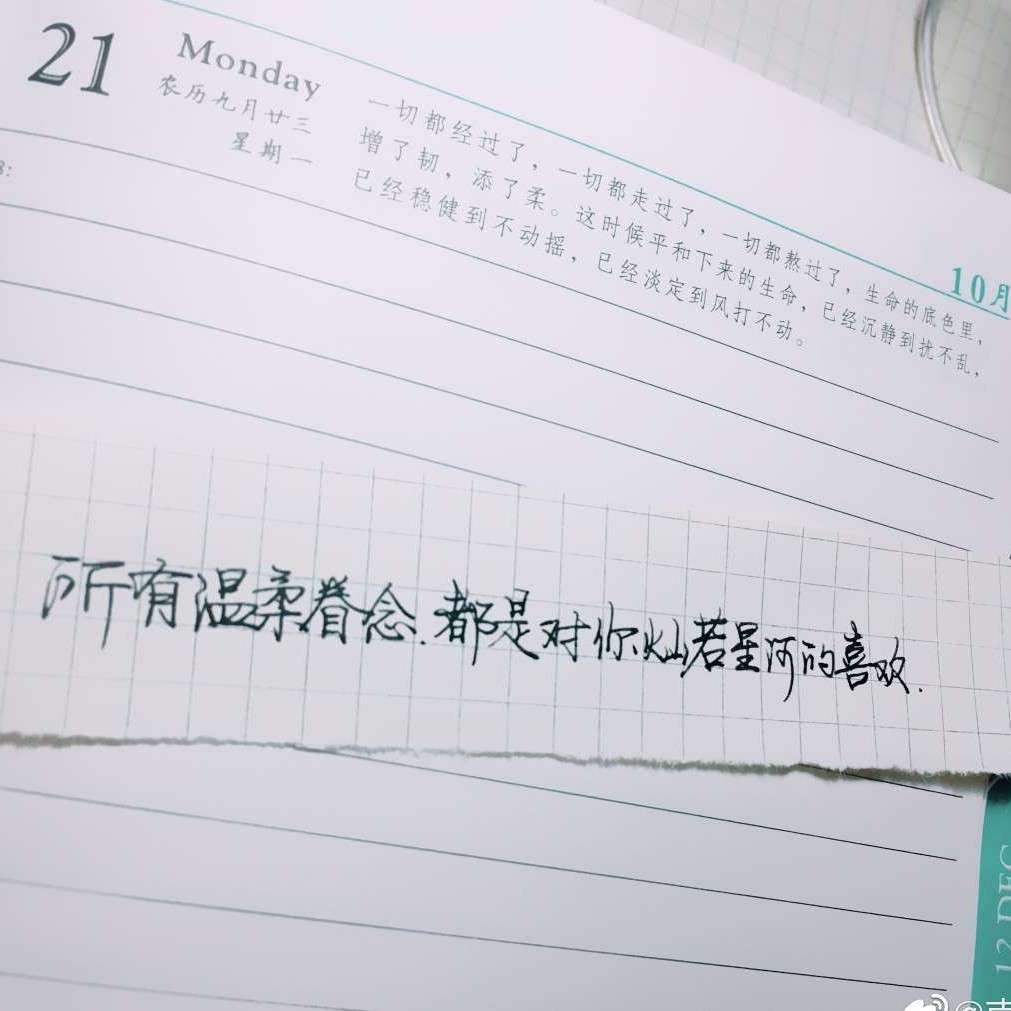 21
Monday
农历九月廿三
星期一
一切都经过了，一切都走过了，一切都熬过了，生命的底色里，
增了韧，添了柔。这时候平和下来的生命，已经沉静到扰不乱，
已经稳健到不动摇，已经淡定到风打不动。
10月
所有温柔眷念.都是对你灿若星河的喜欢.
12 DEC